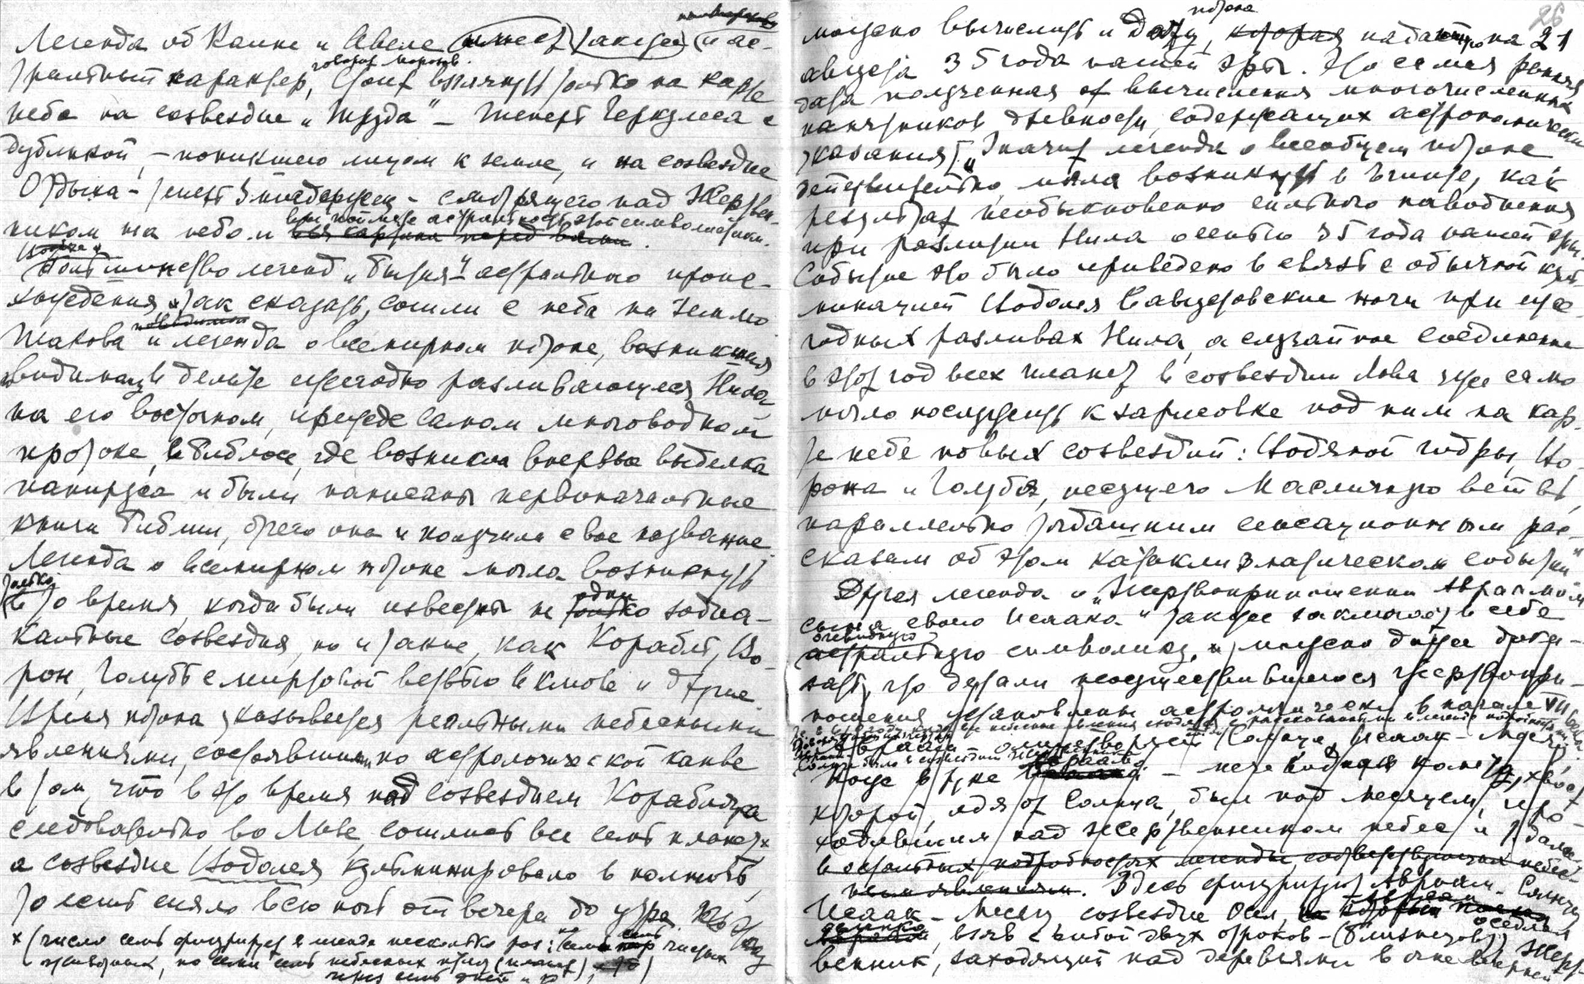 Легенда об Каине и Авеле имеет также и аст-
ральный характер, говорит Морозов. Стоит взглянуть только на карте
неба на созвездие „Труда" – теперь Геркулеса с
дубинкой, – поникшего лицом к земле, и на созвездие
Отдыха – теперь Змиедержец – смотрящего над Жертвен-
ником на небо и вы поймете астральность этой символистики.
Большинство легенд „бытия" астрального проис-
хождения, и, так сказать, сошли с неба на землю.
Такова и легенда о всемирном потопе, возникшая
видимо в дельте ежегодно разливающегося Нила
на его восточном, прежде самом многоводном
протоке, в Библосе, где возникла впервые выделка
папируса и были написаны первоначальные
книги Библии, отчего она и получила свое название.
Легенда о всемирном потопе могла возникнуть
только в то время, когда были известны не одни зодиа-
кальные созвездия, но и такие, как Корабль, Во-
рон, Голубь с миртовой ветвью в клюве и другие.
Время потопа указывается реальными небесными
явлениями, состоявшими по астрологической канве
в том, что в это время над созвездием Корабля
следовательно во Льве сошлись все семь планет х
а созвездие Водолея кульминировало в полночь,
то есть сияло всю ночь от вечера до утра.
х (число семь фигурирует в легенде несколько раз: семь чистых
животных, по семи небесных
через семь дней и
26
можно вычислить и дату потопа, падающую на 21
августа 35 года нашей эры. Это самая ранняя
дата полученная от вычисления многочисленных
памятников древности, содержащих астрономические
указания. „Значит легенда о всеобщем потопе
действительно могла возникнуть в Египте, как
результат необыкновенно сильного наводнения
при разлитии Нила осенью 35 года нашей эры.
Событие это было приведено в связь с обычной куль-
минацией Водолея в августовские ночи при еже-
годных разливах Нила, а случайное соединение
в этот год всех планет в созвездии Льва уже само
могло послужить к зарисовке под ним на кар-
те неба новых созвездий: Водяной гидры, Во-
рона и Голубя, несущего масличную ветвь,
параллельно тогдашним сенсационным рас-
сказам об этом катаклизматическом событии"
Другая легенда о „Жертвоприношении Авраамом
сына своего Исаака" также заключает в себе
очевидную астральную символику, и можно даже дока-
зать, что детали неосуществившегося жертвопри-
ношения установлены астрономически в начале VII века
Авраам олицетворяет Солнце, Исаак – Месяц,
Нож в руке Авраама – комета, хвост
которой, идя от Солнца, был над месяцем, про-
ходившим над жертвенником небес и
в остальных подробностях легенды соответствующая небес-
ным явлениям. Здесь фигурируют Авраам – Солнце
Исаак – Месяц созвездие Осел,
взяв с собой двух отроков (близнецов), Жерт-
венник, заходящий над деревьями в огне вечерней